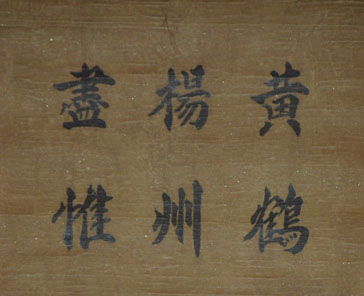 黄鶴
楊州
盡惟